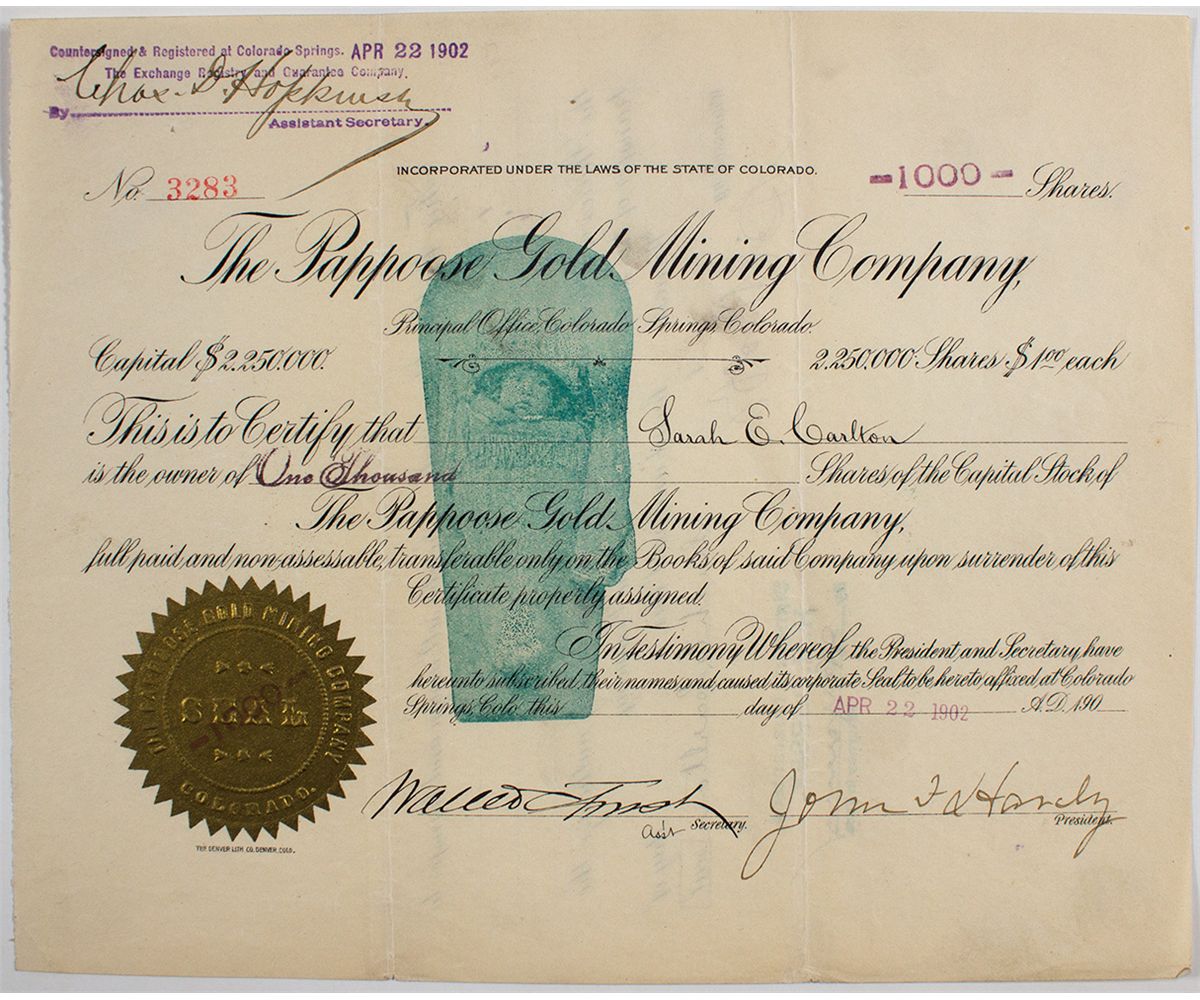 Countersigned & Registered at Colorado Springs. APR 22 1902
The Exchange Registry and Guarantee Company.
By Chas. D. Hopkins
Assistant Secretary.
INCORPORATED UNDER THE LAWS OF THE STATE OF COLORADO.
No. 3283
-1000- Shares.
The Pappoose Gold Mining Company,
Principal Office, Colorado Springs, Colorado.
Capital $2.250.000.
2.250.000 Shares $1.00 each
This is to Certify that Sarah E. Carlton
is the owner of One Thousand Shares of the Capital Stock of
The Pappoose Gold Mining Company,
full paid, and non-assessable, transferable only on the Books of said Company upon surrender of this
Certificate properly assigned.
In Testimony Whereof the President, and Secretary, have
hereunto subscribed, their names, and caused, its corporate Seal, to be hereto, affixed, at Colorado
Springs, Colo. this day of APR 22 1902 A.D. 190
THE PAPPOOSE GOLD MINING COMPANY
SEAL
-1000-
COLORADO.
Asst Secretary.
President.
THE DENVER LITH. CO. DENVER, COLO.